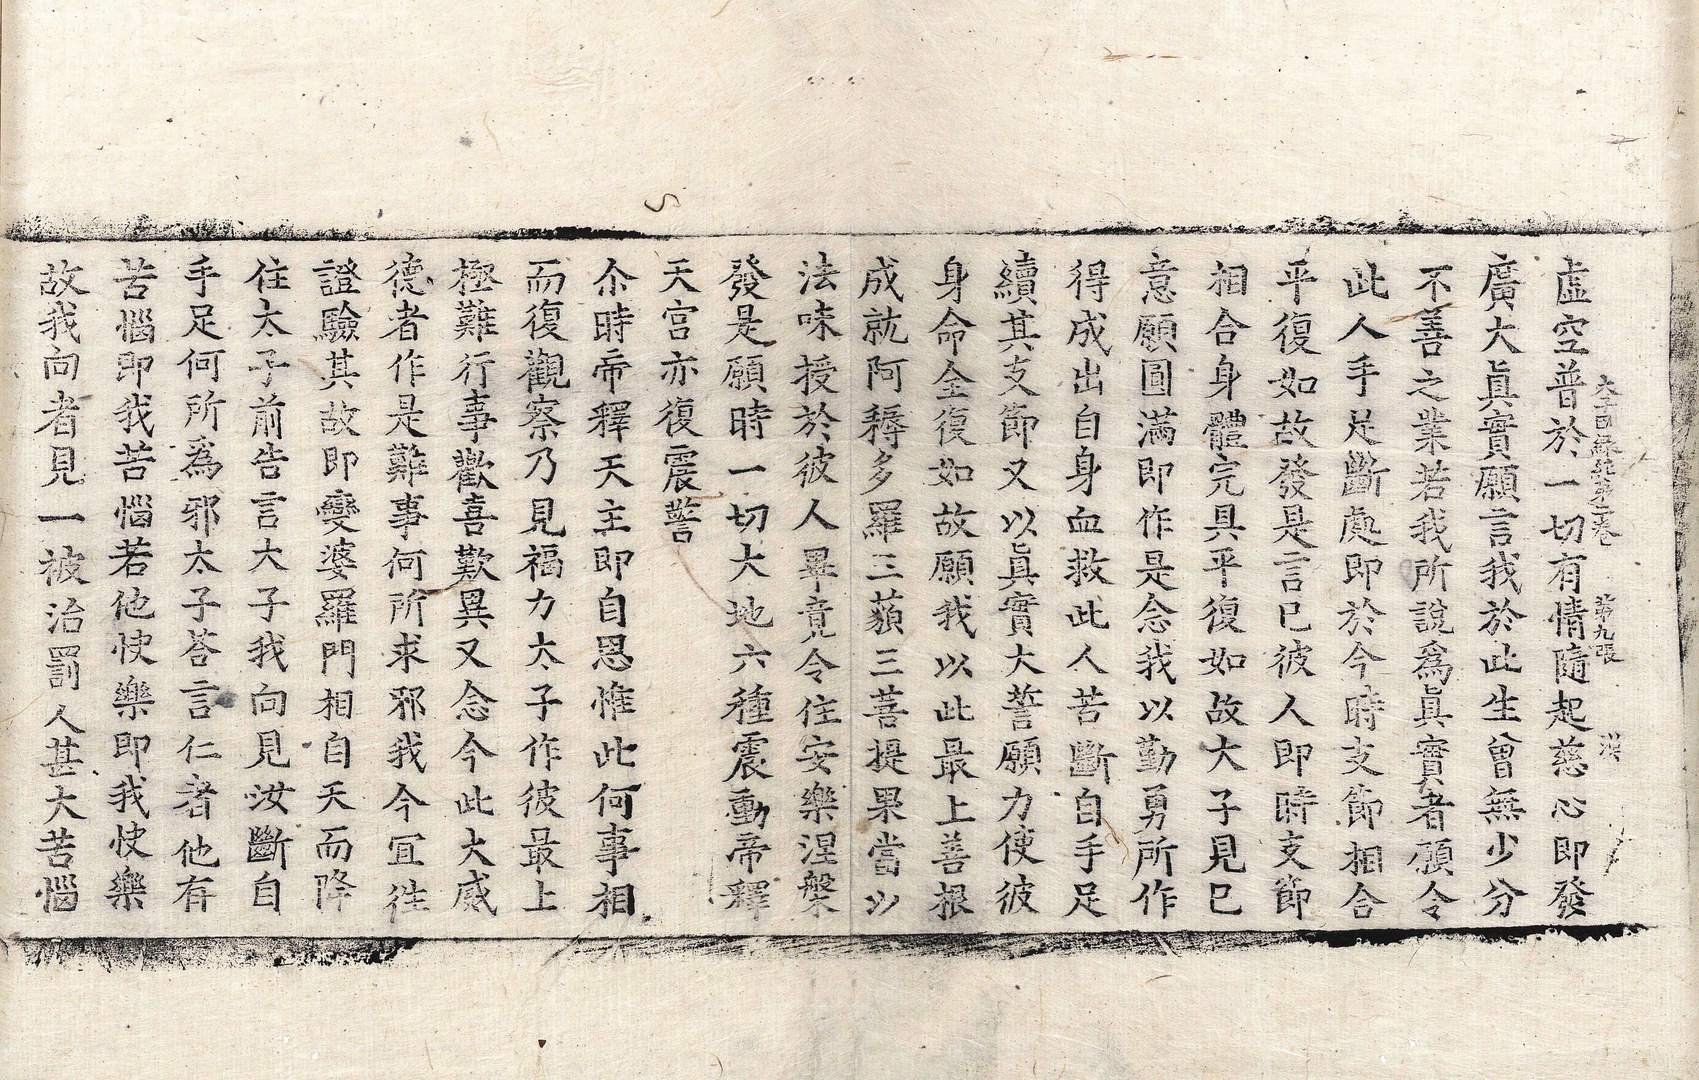 太子因緣經第二卷 第九張
虛空普於一切有情隨起慈心即發
廣大眞實願言我於此生曾無少分
不善之業若我所說爲眞實者願令
此人手足斷處即於今時支節相合
平復如故發是言已彼人即時支節
相合身體完具平復如故大子見已
意願圓滿即作是念我以勤勇所作
得成出自身血救此人苦斷自手足
續其支節又以眞實大誓願力使彼
身命全復如故願我以此最上善根
成就阿耨多羅三藐三菩提果當以
法味授於彼人畢竟令住安樂涅槃
發是願時一切大地六種震動帝釋
天宮亦復震警
尒時帝釋天主即自思惟此何事相
而復觀察乃見福力太子作彼最上
極難行事歡喜歎異又念今此大威
德者作是難事何所求邪我今宜往
證驗其故即變婆羅門相自天而降
住太子前告言大子我向見汝斷自
手足何所爲邪太子荅言仁者他有
苦惱即我苦惱若他快樂即我快樂
故我向者見一被治罰人甚大苦惱